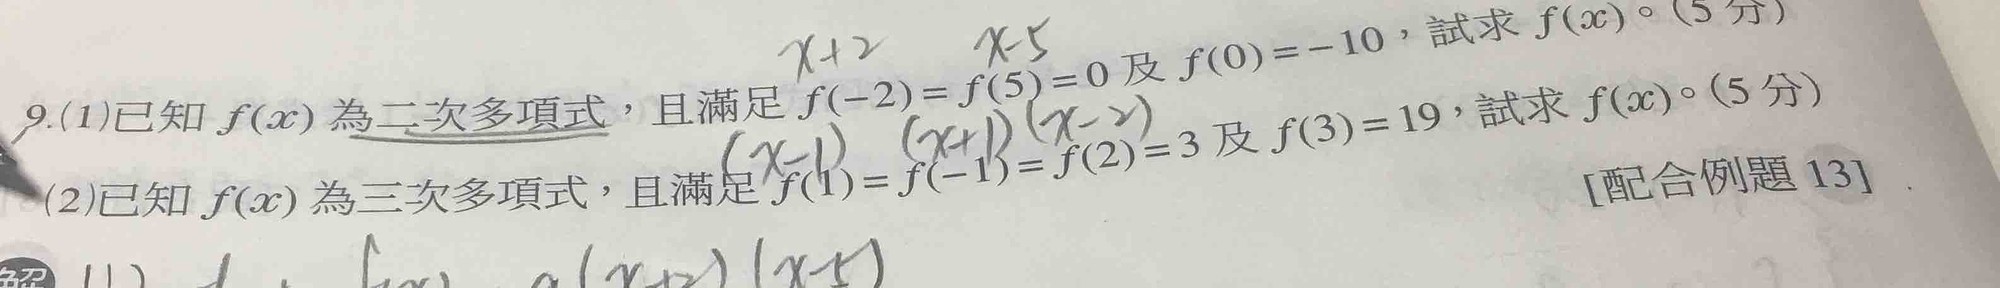 x+2 x-5
9.(1)已知 f(x) 為二次多項式，且滿足 f(−2)=f(5)=0 及 f(0)=−10，試求 f(x)。(5 分)
(x-1) (x+1)(x-2)
(2)已知 f(x) 為三次多項式，且滿足 f(1)=f(−1)=f(2)=3 及 f(3)=19，試求 f(x)。(5 分)
[配合例題 13]
解 (1) f(x) a(x+2)(x-5)